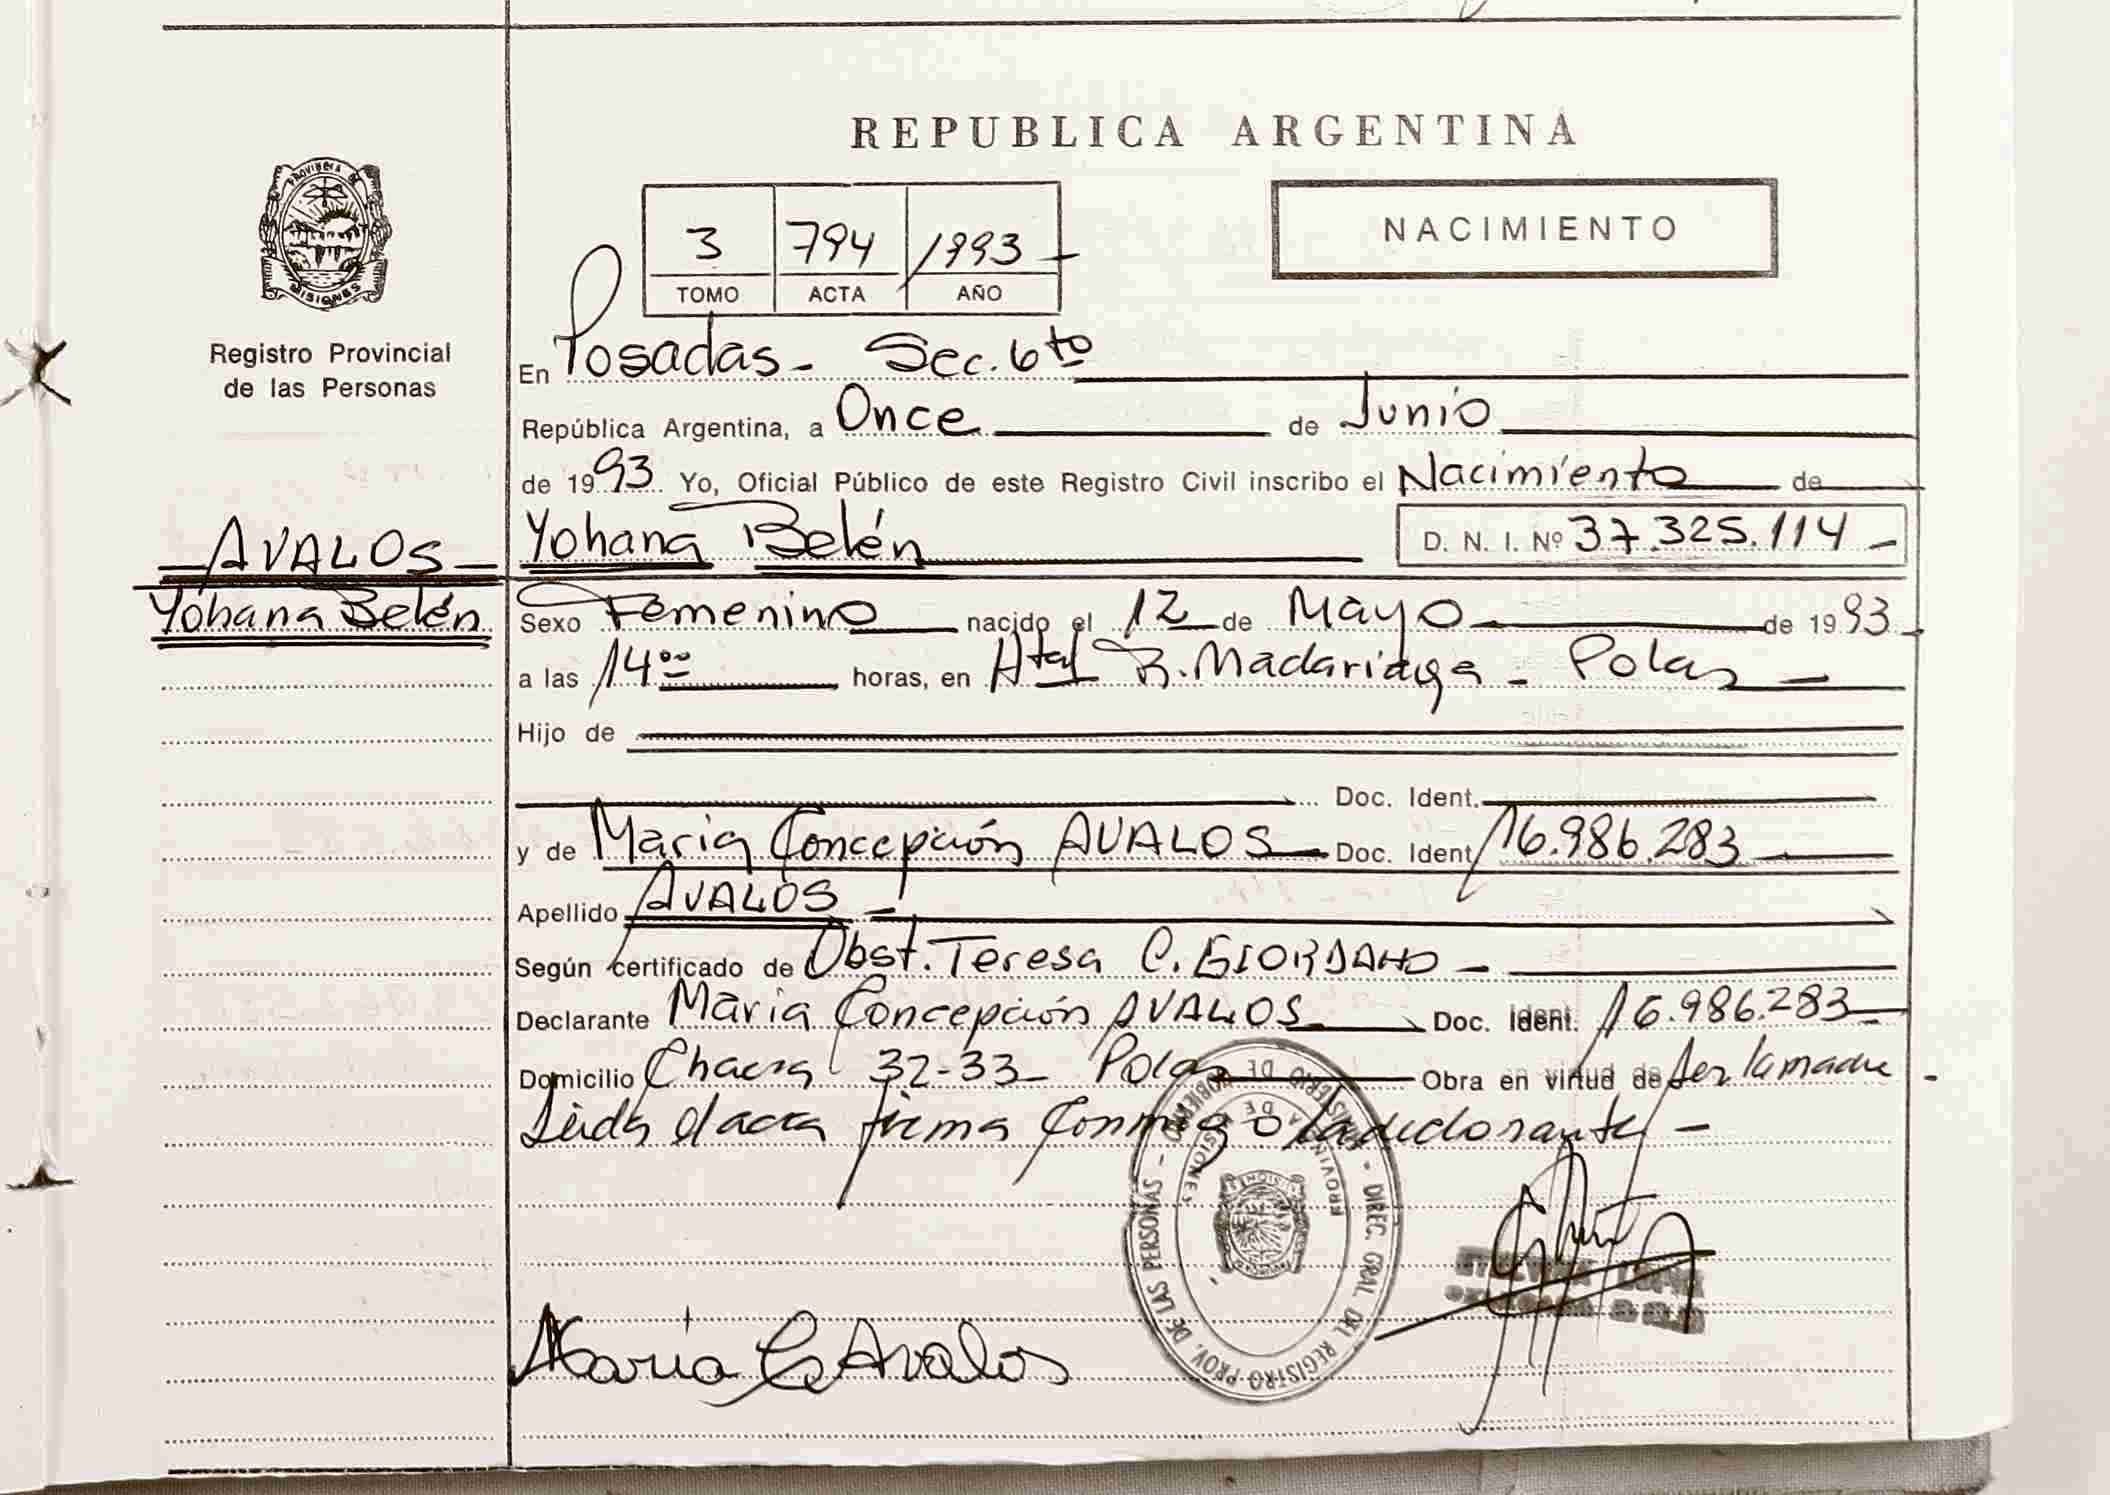 REPUBLICA ARGENTINA
PROVINCIA DE
MISIONES
Registro Provincial
de las Personas
3 794 1993
TOMO ACTA AÑO
NACIMIENTO
En Posadas - Sec. 6to
República Argentina, a Once de Junio
de 1993 Yo, Oficial Público de este Registro Civil inscribo el Nacimiento de
AVALOS
Yohana Belén
Yohana Belén D. N. I. Nº 37.325.114 -
Sexo Femenino nacido el 12 de Mayo de 1993
a las 14 00 horas, en Htal R. Madariaga - Pdas
Hijo de
Doc. Ident.
y de Maria Concepción AVALOS Doc. Ident 16.986.283
Apellido AVALOS -
Según certificado de Obst. Teresa C. GIORDANO -
Declarante Maria Concepción AVALOS Doc. Ident. 16.986.283
Domicilio Chacra 32-33 Pdas Obra en virtud de ser la madre
Leida el acta firma Conmigo la declarante -
MINISTERIO DE GOBIERNO - DIREC. GRAL. DEL REGISTRO PROV. DE LAS PERSONAS -
PROVINCIA DE MISIONES
Maria C Avalos